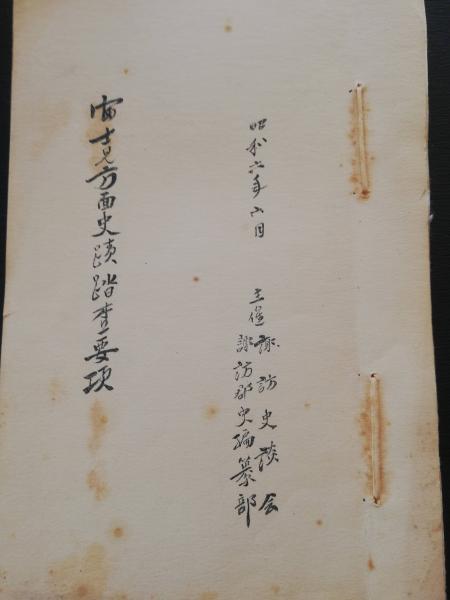 昭和六年六月
主催 諏訪史談会
諏訪郡史編纂部
富士見方面史蹟踏査要項